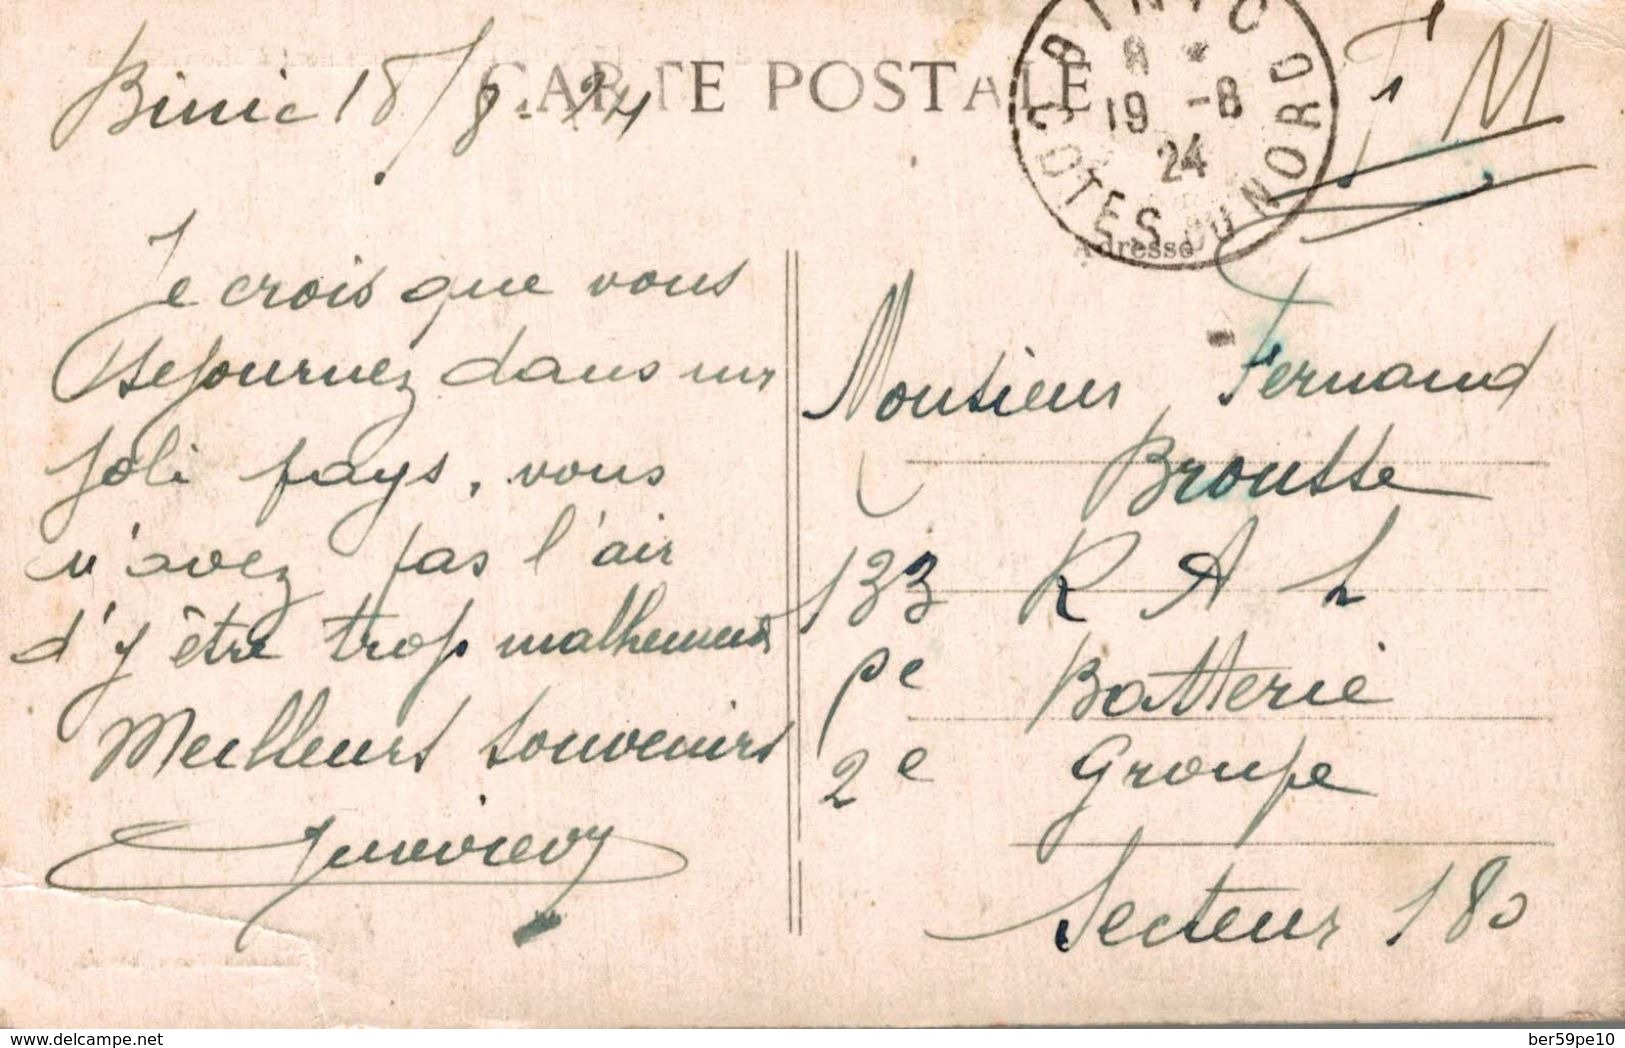 CARTE POSTALE
Binic 18/8-24
F M
BINIC
8 *
19 -8
24
COTES DU NORD
Adresse
Je crois que vous
séjournez dans un
joli pays, vous
n'avez pas l'air
d'y être trop malheureux
Meilleurs souvenirs
Monsieur Fernand
Brousse
133 R A L
Batterie
2e Groupe
Secteur 180
delcampe.net
ber59pe10